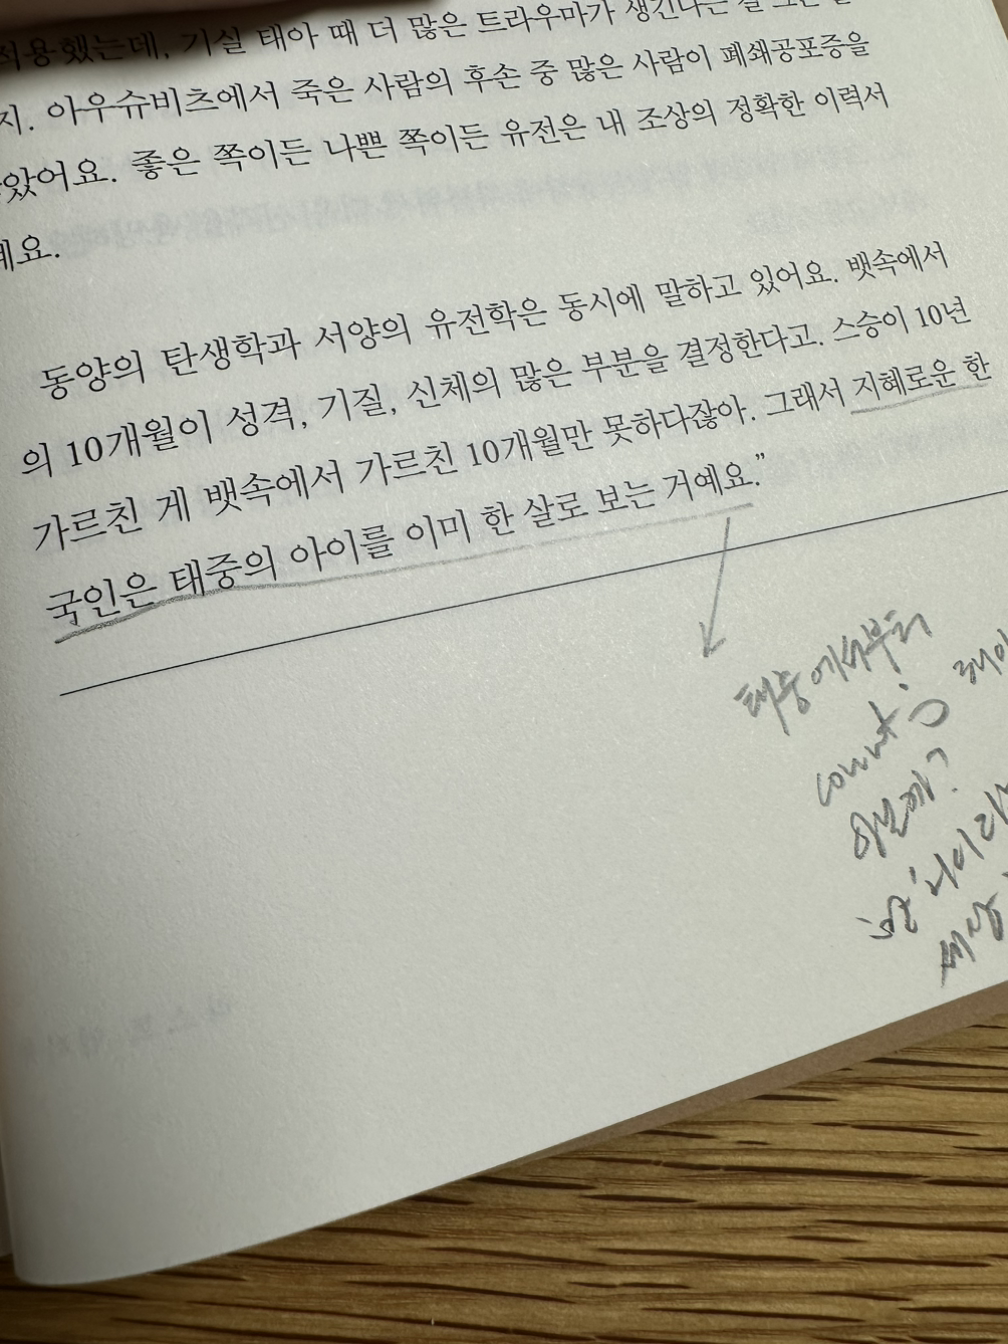 적용했는데, 기실 태아 때 더 많은 트라우마가 생긴다는
지. 아우슈비츠에서 죽은 사람의 후손 중 많은 사람이 폐쇄공포증을
았어요. 좋은 쪽이든 나쁜 쪽이든 유전은 내 조상의 정확한 이력서
예요.
동양의 탄생학과 서양의 유전학은 동시에 말하고 있어요. 뱃속에서
의 10개월이 성격, 기질, 신체의 많은 부분을 결정한다고. 스승이 10년
가르친 게 뱃속에서 가르친 10개월만 못하다잖아. 그래서 지혜로운 한
국인은 태중의 아이를 이미 한 살로 보는 거예요.”
태중에서부터
count